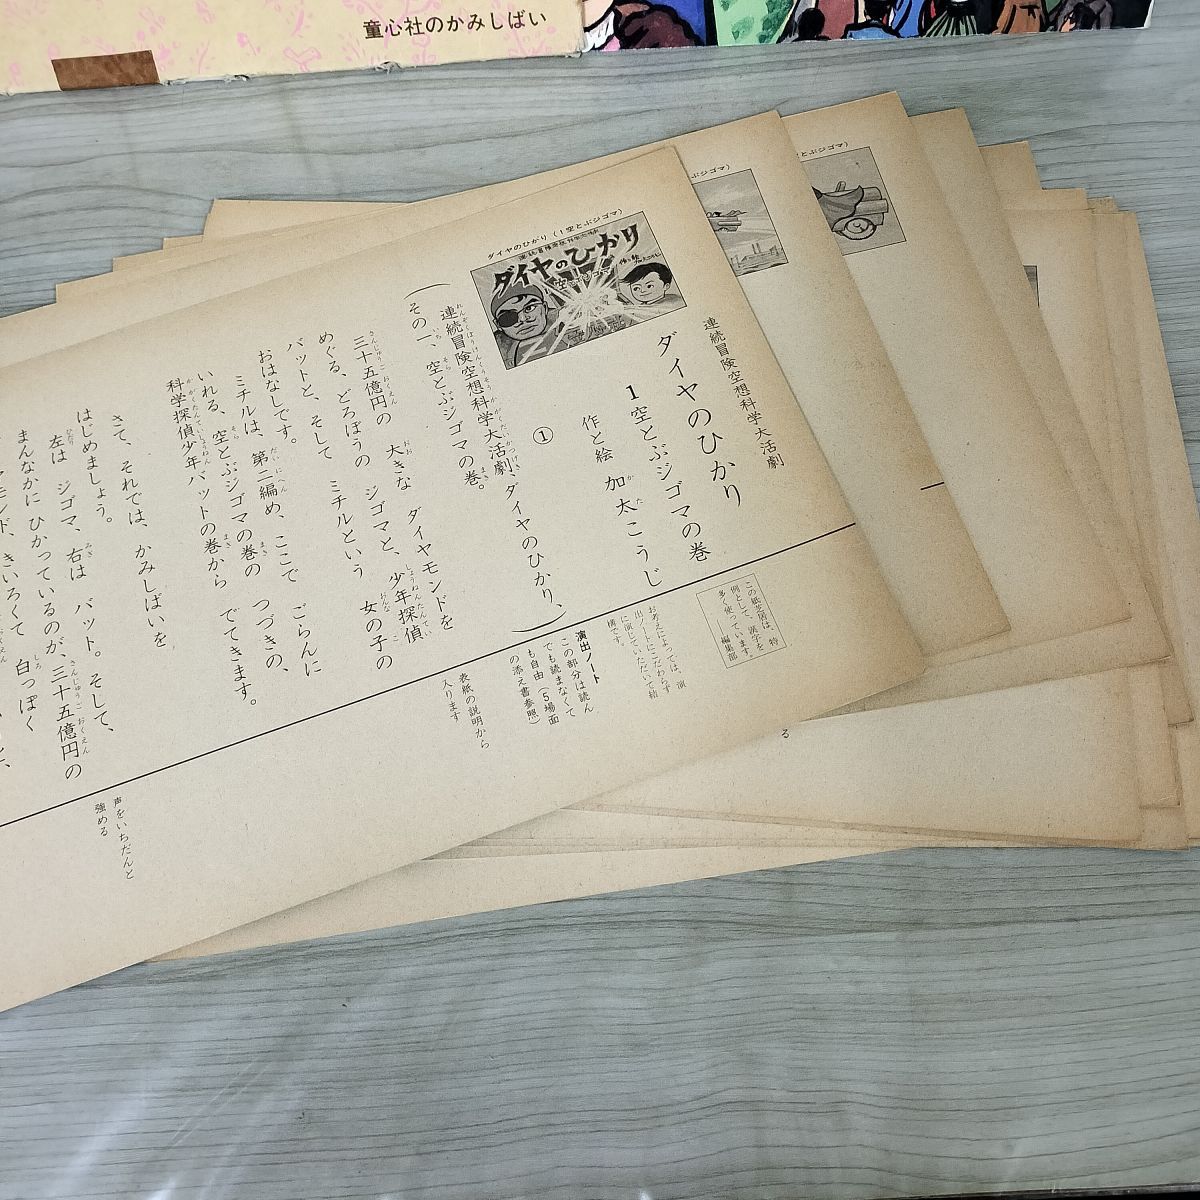 童心社のかみしばい
ダイヤのひかり(1空とぶジゴマ)
ダイヤのひかり
空とぶジゴマ
連続冒険空想科学大活劇
ダイヤのひかり
1空とぶジゴマの巻
作と絵 加太こうじ
①
(連続冒険空想科学大活劇、ダイヤのひかり、
その一、空とぶジゴマの巻。)
三十五億円の 大きな ダイヤモンドを
めぐる、どろぼうの ジゴマと、少年探偵
バットと、そして ミチルという 女の子の
おはなしです。
ミチルは、第二編め、ここで ごらんに
いれる、空とぶジゴマの巻の つづきの、
科学探偵少年バットの巻から でてきます。
さて、それでは、かみしばいを
はじめましょう。
左は ジゴマ、右は バット。そして、
まんなかに ひかっているのが、三十五億円の
きいろくて 白っぽく
この紙芝居は、特
例として、漢字を
多く使っています。
―編集部
お考えによっては、演
出ノートにこだわらず
に演じていただいて結
構です。
演出ノート
この部分は読ん
でも読まなくて
も自由(5場面
の添え書参照)
表紙の説明から
入ります
声をいちだんと
強める
とぶジゴマ)
る